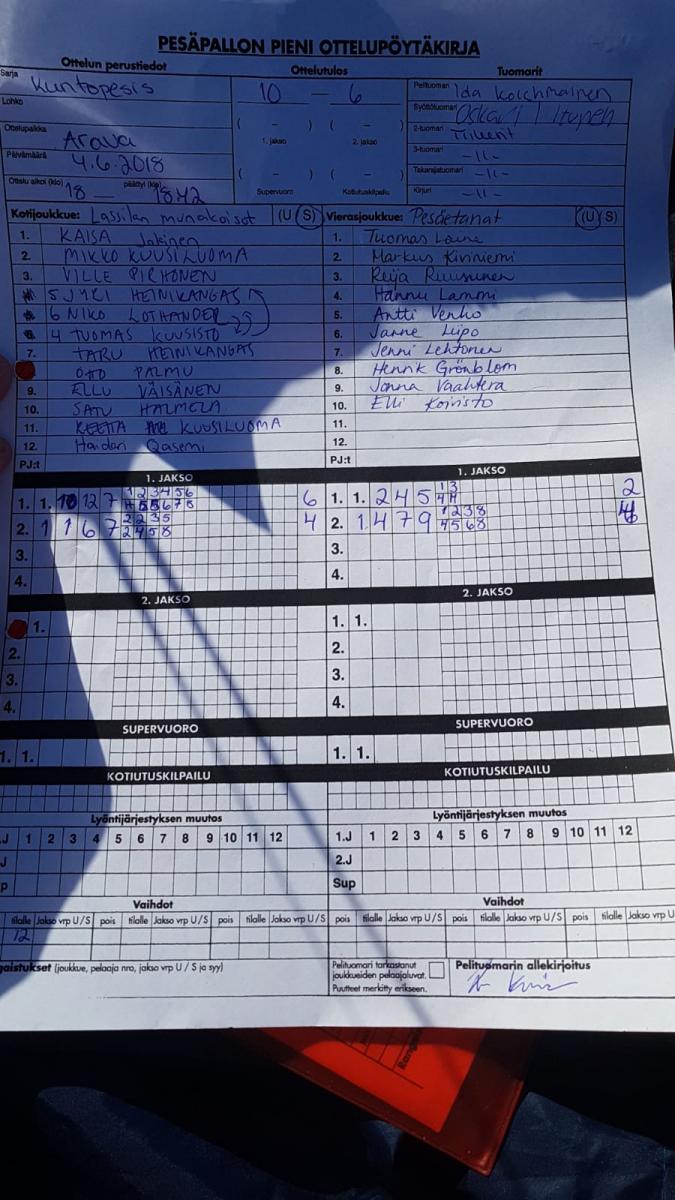 PESÄPALLON PIENI OTTELUPÖYTÄKIRJA
Ottelun perustiedot Ottelutulos Tuomarit
Sarja Kuntopesis 10 – 6 Pelituomari Ida
Lohko Syöttötuomari Oskari
( – ) ( – ) 2-tuomari
Ottelupaikka Arava 1. jakso 2. jakso 3-tuomari -11-
Päivämäärä 4.6.2018 ( – ) ( – ) Takarajatuomari -11-
Ottelu alkoi (klo) 18 — päättyi (klo) 1842 Supervuoro Kotiutuskilpailu Kirjuri -11-
Kotijoukkue: Lassilan munakoisot (U S) Vierasjoukkue: Pesäetanat (U S)
1. KAISA Jokinen 1. Tuomas Laine
2. MIKKO KUUSILUOMA 2. Markus Kiviniemi
3. VILLE PIRHONEN 3. Reija Ruusunen
5 JYRI HEINIKANGAS 4. Hannu Lammi
6 NIKO LOTHANDER 5. Antti Venho
4 TUOMAS KUUSISTO 6. Janne Liipo
7. TARU HEINIKANGAS 7. Jenni Lehtonen
OTTO PALMU 8. Henrik Grönblom
9. ELLU VÄISÄNEN 9. Janna Vaahtera
10. SATU HALMELA 10. Elli Koivisto
11. REETTA KUUSILUOMA 11.
12. Haidari Qasemi 12.
PJ:t PJ:t
1. JAKSO 1. JAKSO
1. 1. 10 12 7 1 2 3 4 5 6 6 1. 1. 2 4 5 1 3 2
6 7 8
2. 1 1 6 7 2 2 3 5 4 2. 1 4 7 9 1 2 3 8 4
2 4 5 8 4 5 6 8
3. 3.
4. 4.
2. JAKSO 2. JAKSO
1. 1. 1.
2. 2.
3. 3.
4. 4.
SUPERVUORO SUPERVUORO
1. 1. 1. 1.
KOTIUTUSKILPAILU KOTIUTUSKILPAILU
Lyöntijärjestyksen muutos Lyöntijärjestyksen muutos
.J 1 2 3 4 5 6 7 8 9 10 11 12 1.J 1 2 3 4 5 6 7 8 9 10 11 12
J 2.J
p Sup
Vaihdot Vaihdot
tilalle Jakso vrp U/S pois tilalle Jakso vrp U/S pois tilalle Jakso vrp U/S pois tilalle Jakso vrp U/S pois tilalle Jakso vrp U/S pois tilalle Jakso vrp U
12
gaistukset (joukkue, pelaaja nro, jakso vrp U/S ja syy) Pelituomari tarkastanut Pelituomarin allekirjoitus
joukkueiden pelaajaluvat.
Puutteet merkitty erikseen.